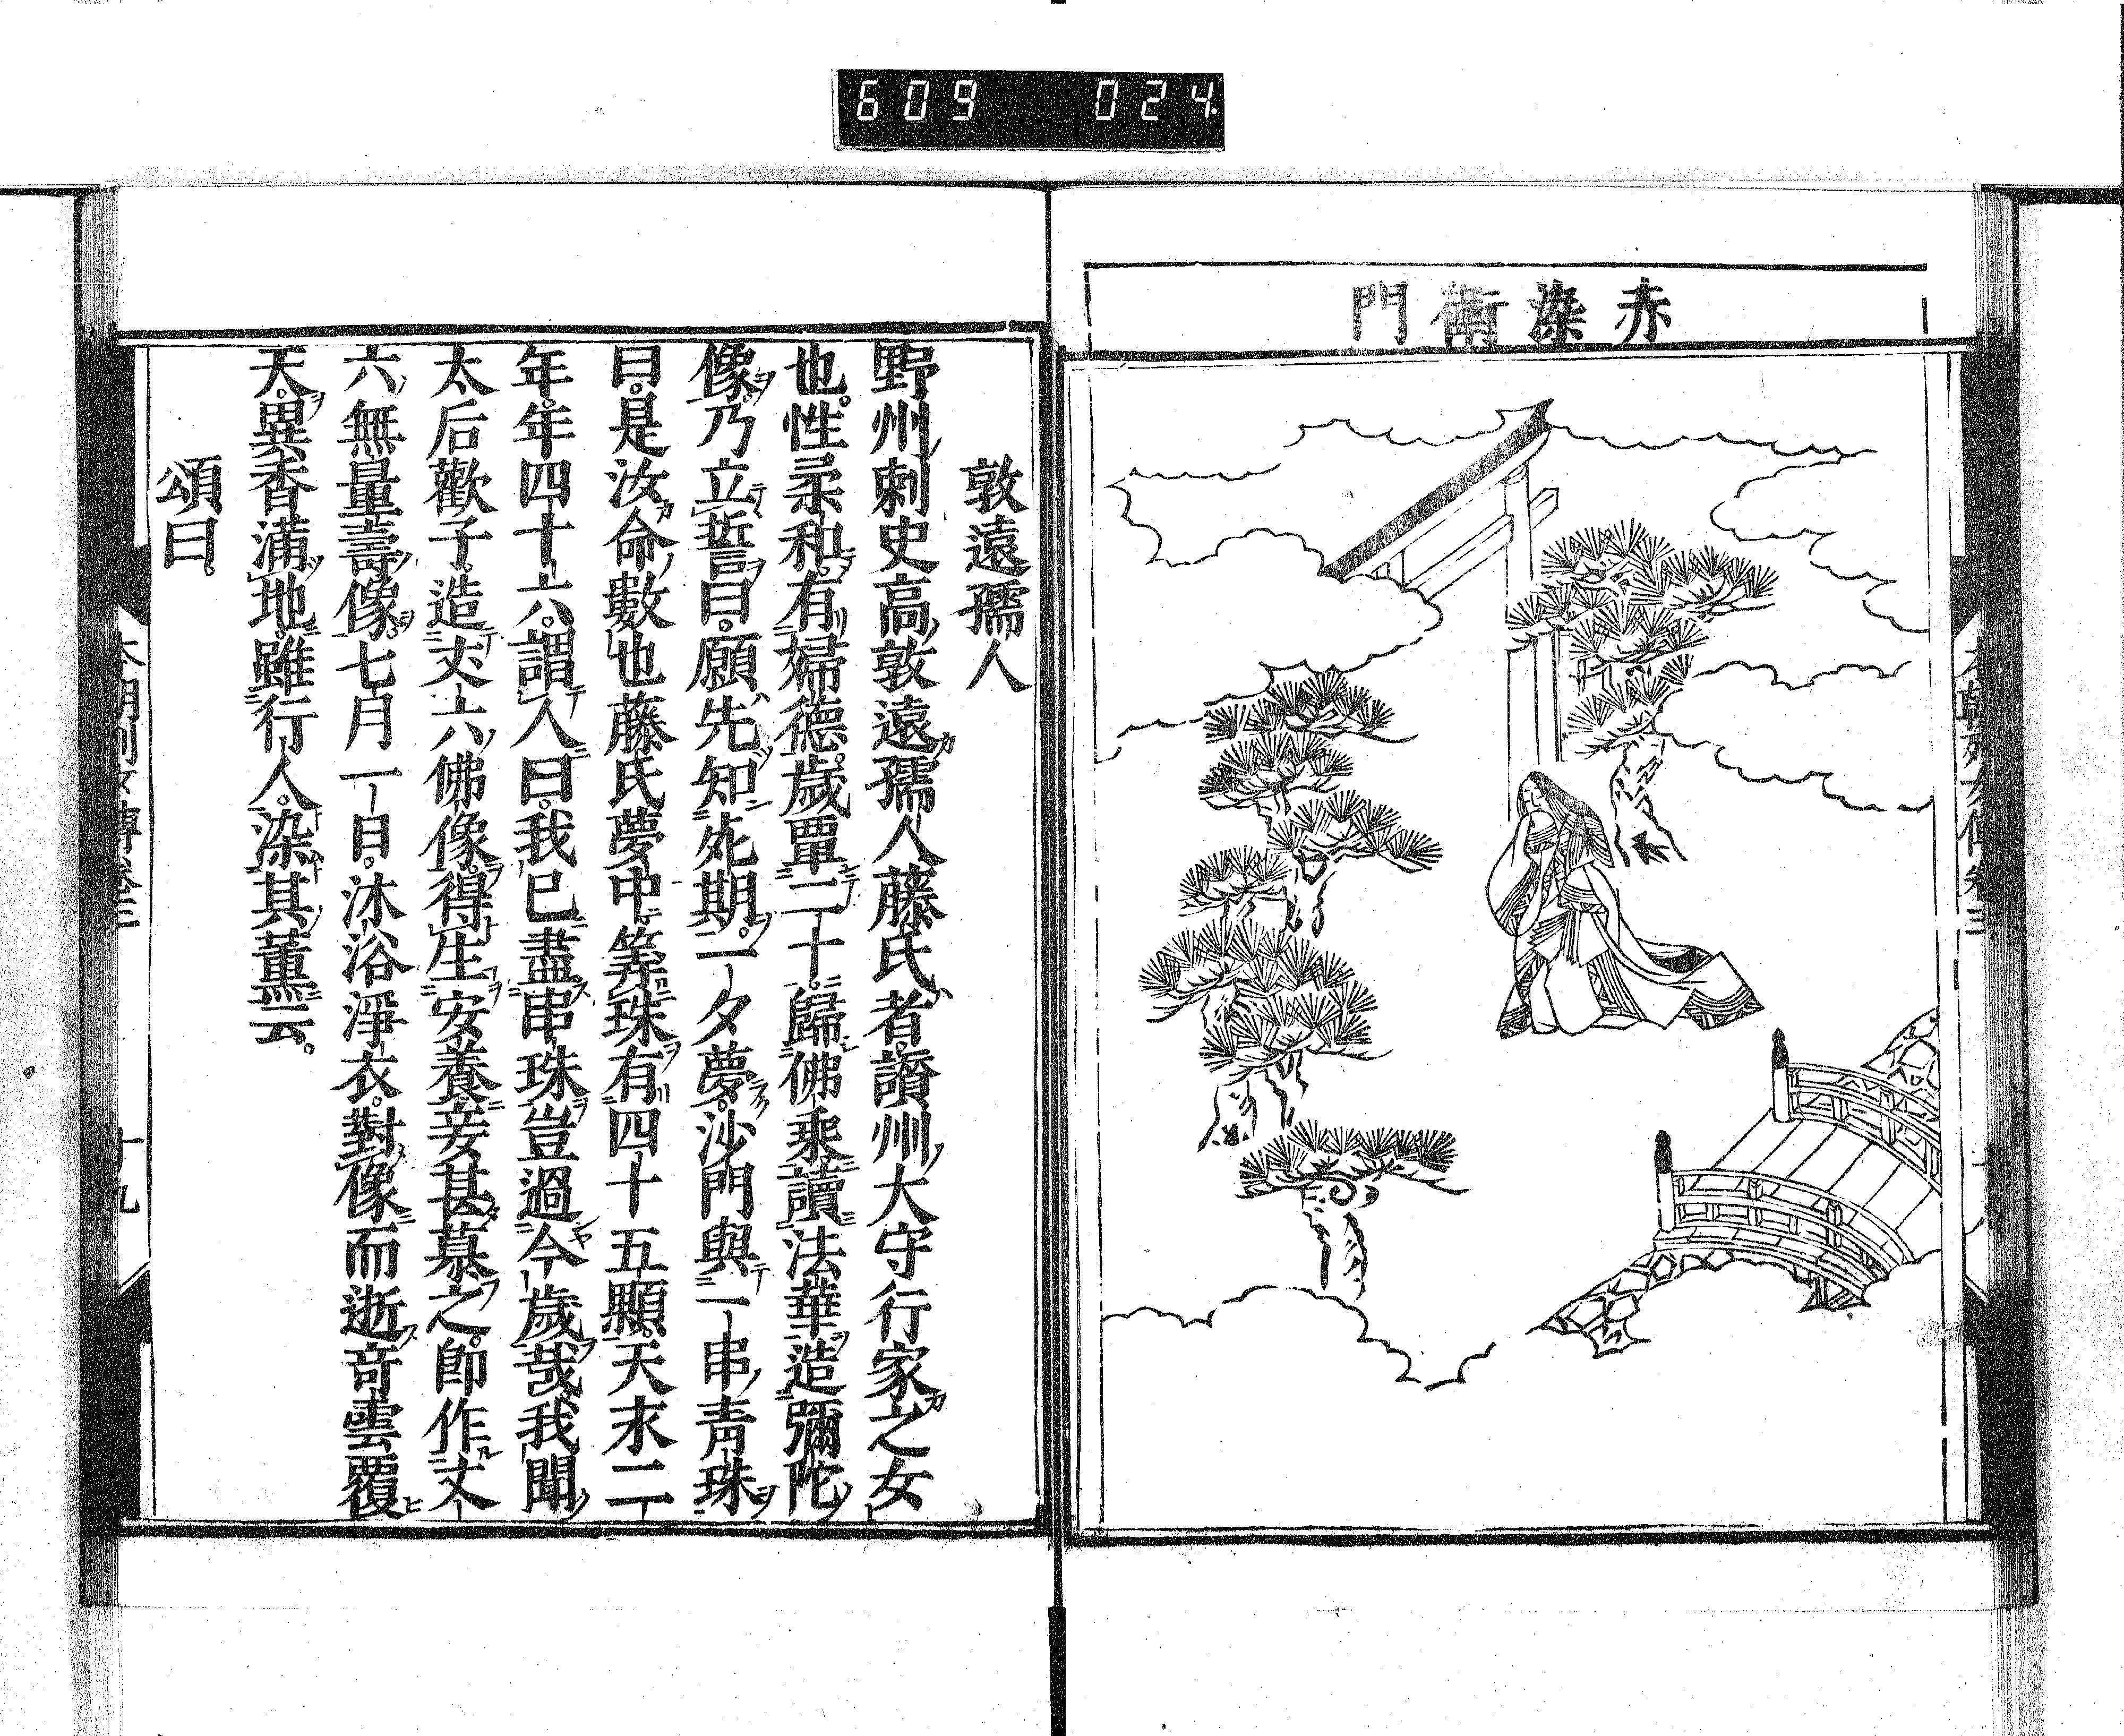 609 024
赤染衛門
敦遠孺人
野州刺史高敦遠孺人藤氏者讃州大守行家之女
也性柔和有婦德歲覃二十歸佛乘讀法華造彌陀
像乃立誓曰願先知死期一夕夢沙門與一串青珠
曰是汝命數也藤氏夢中筭珠有四十五顆天永二
年年四十六謂人曰我已盡串珠豈過今歲哉我聞
太后歡子造丈六佛像得生安養妾甚慕之即作丈
六無量壽像七月一日沐浴淨衣對像而逝奇雲覆
天異香滿地雖行人染其薫云
頌曰
本朝列女傳卷三 十九